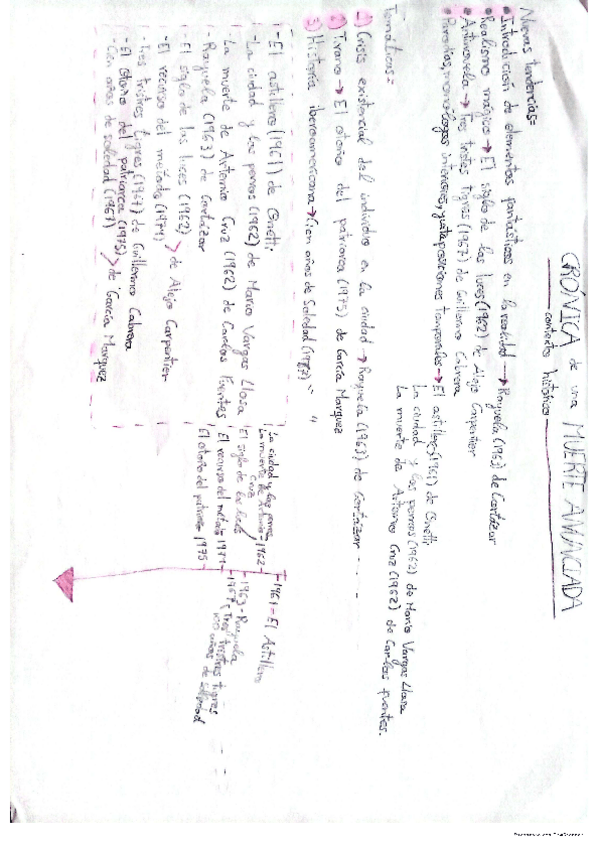 CRÓNICA de una MUERTE ANUNCIADA
contexto histórico
Nuevas tendencias=
• Introducción de elementos fantásticos en la realidad → Rayuela (1963) de Cortázar
• Realismo mágico → El siglo de las luces (1962) de Alejo Carpentier
• Antinovela → Tres tristes tigres (1967) de Guillermo Cabrera
• Parodias, monólogos interiores, yuxtaposiciones temporales → El astillero (1961) de Onetti
La ciudad y los perros (1962) de Mario Vargas Llosa
La muerte de Artemio Cruz (1962) de Carlos Fuentes.
Temáticas=
1) Crisis existencial del individuo en la ciudad → Rayuela (1963) de Cortázar
2) Tirano → El otoño del patriarca (1975) de García Márquez
3) Historia iberoamericana → Cien años de Soledad (1967) " "
- El astillero (1961) de Onetti
- La ciudad y los perros (1962) de Mario Vargas Llosa
- La muerte de Artemio Cruz (1962) de Carlos Fuentes
- Rayuela (1963) de Cortázar
- El siglo de las luces (1962)
- El recurso del método (1974) > de Alejo Carpentier
- Tres tristres tigres (1967) de Guillermo Cabrera
- El otoño del patriarca (1975)
- Cien años de soledad (1967) > de García Márquez
1961 - El Astillero
La ciudad y los perros
La muerte de Artemio Cruz - 1962
El siglo de las luces
1963 - Rayuela
1967 Tres tristres tigres
100 años de soledad
El recurso del método - 1974
El otoño del patriarca - 1975